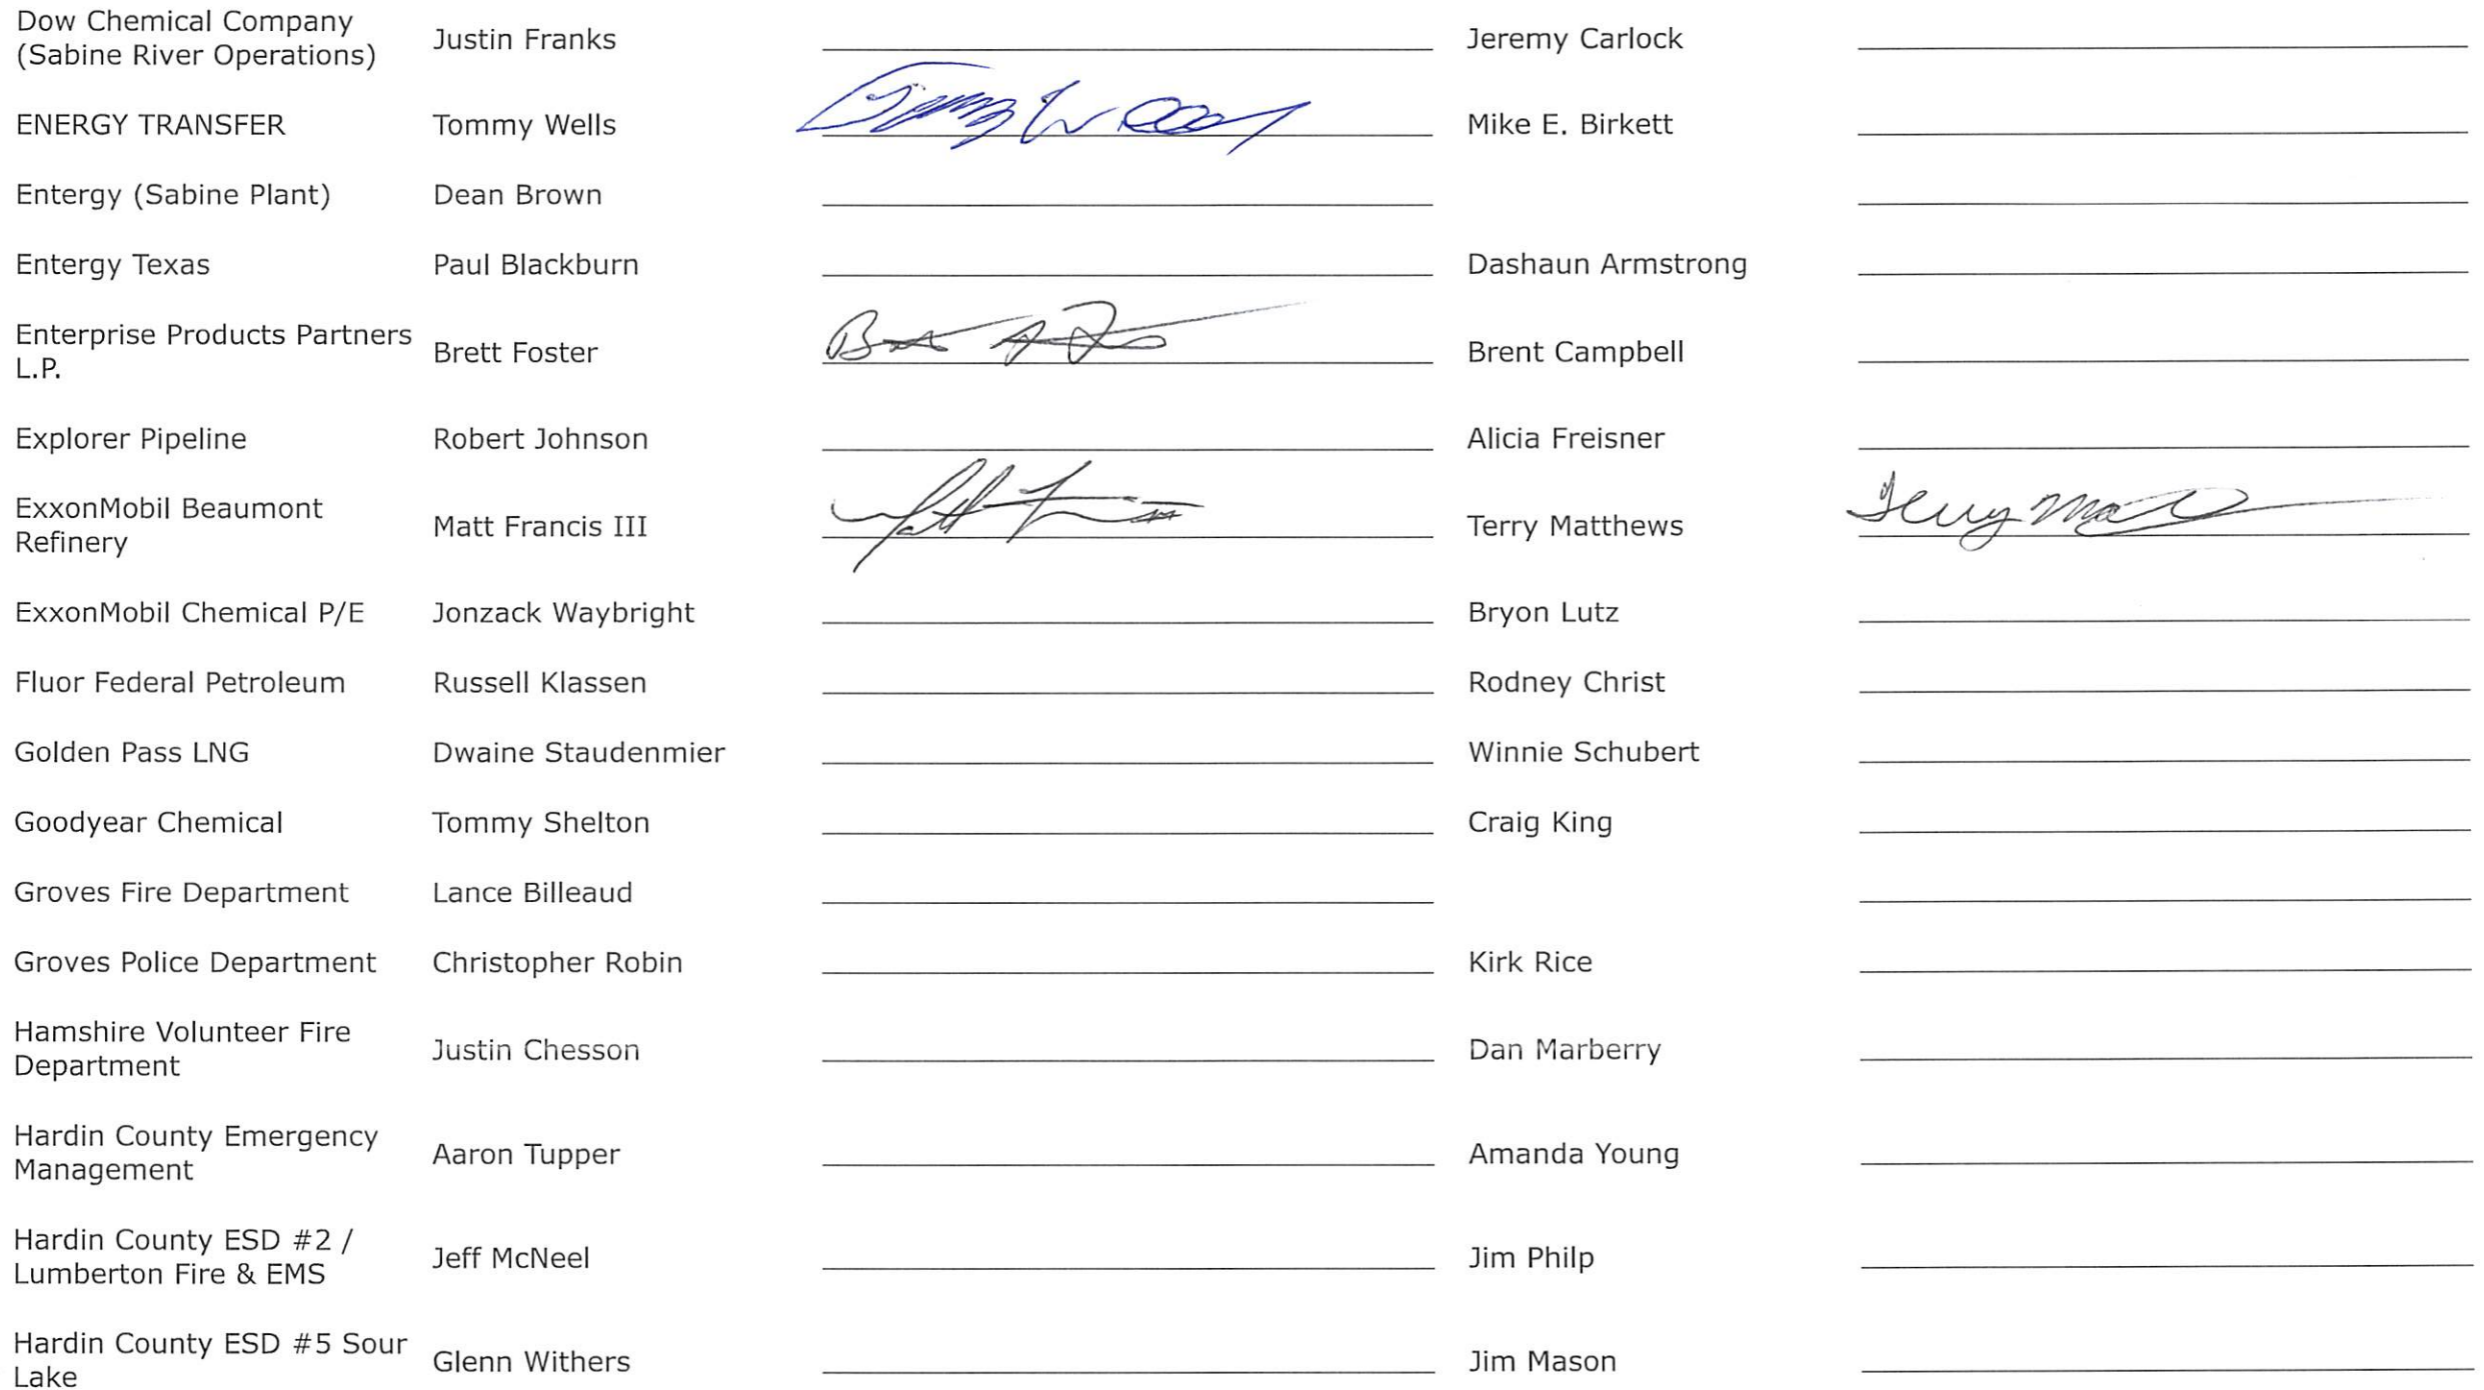 Dow Chemical Company
(Sabine River Operations) Justin Franks Jeremy Carlock
ENERGY TRANSFER Tommy Wells Tommy Wells Mike E. Birkett
Entergy (Sabine Plant) Dean Brown
Entergy Texas Paul Blackburn Dashaun Armstrong
Enterprise Products Partners
L.P. Brett Foster Brent Campbell
Explorer Pipeline Robert Johnson Alicia Freisner
ExxonMobil Beaumont
Refinery Matt Francis III Terry Matthews Terry
ExxonMobil Chemical P/E Jonzack Waybright Bryon Lutz
Fluor Federal Petroleum Russell Klassen Rodney Christ
Golden Pass LNG Dwaine Staudenmier Winnie Schubert
Goodyear Chemical Tommy Shelton Craig King
Groves Fire Department Lance Billeaud
Groves Police Department Christopher Robin Kirk Rice
Hamshire Volunteer Fire
Department Justin Chesson Dan Marberry
Hardin County Emergency
Management Aaron Tupper Amanda Young
Hardin County ESD #2 /
Lumberton Fire & EMS Jeff McNeel Jim Philp
Hardin County ESD #5 Sour
Lake Glenn Withers Jim Mason